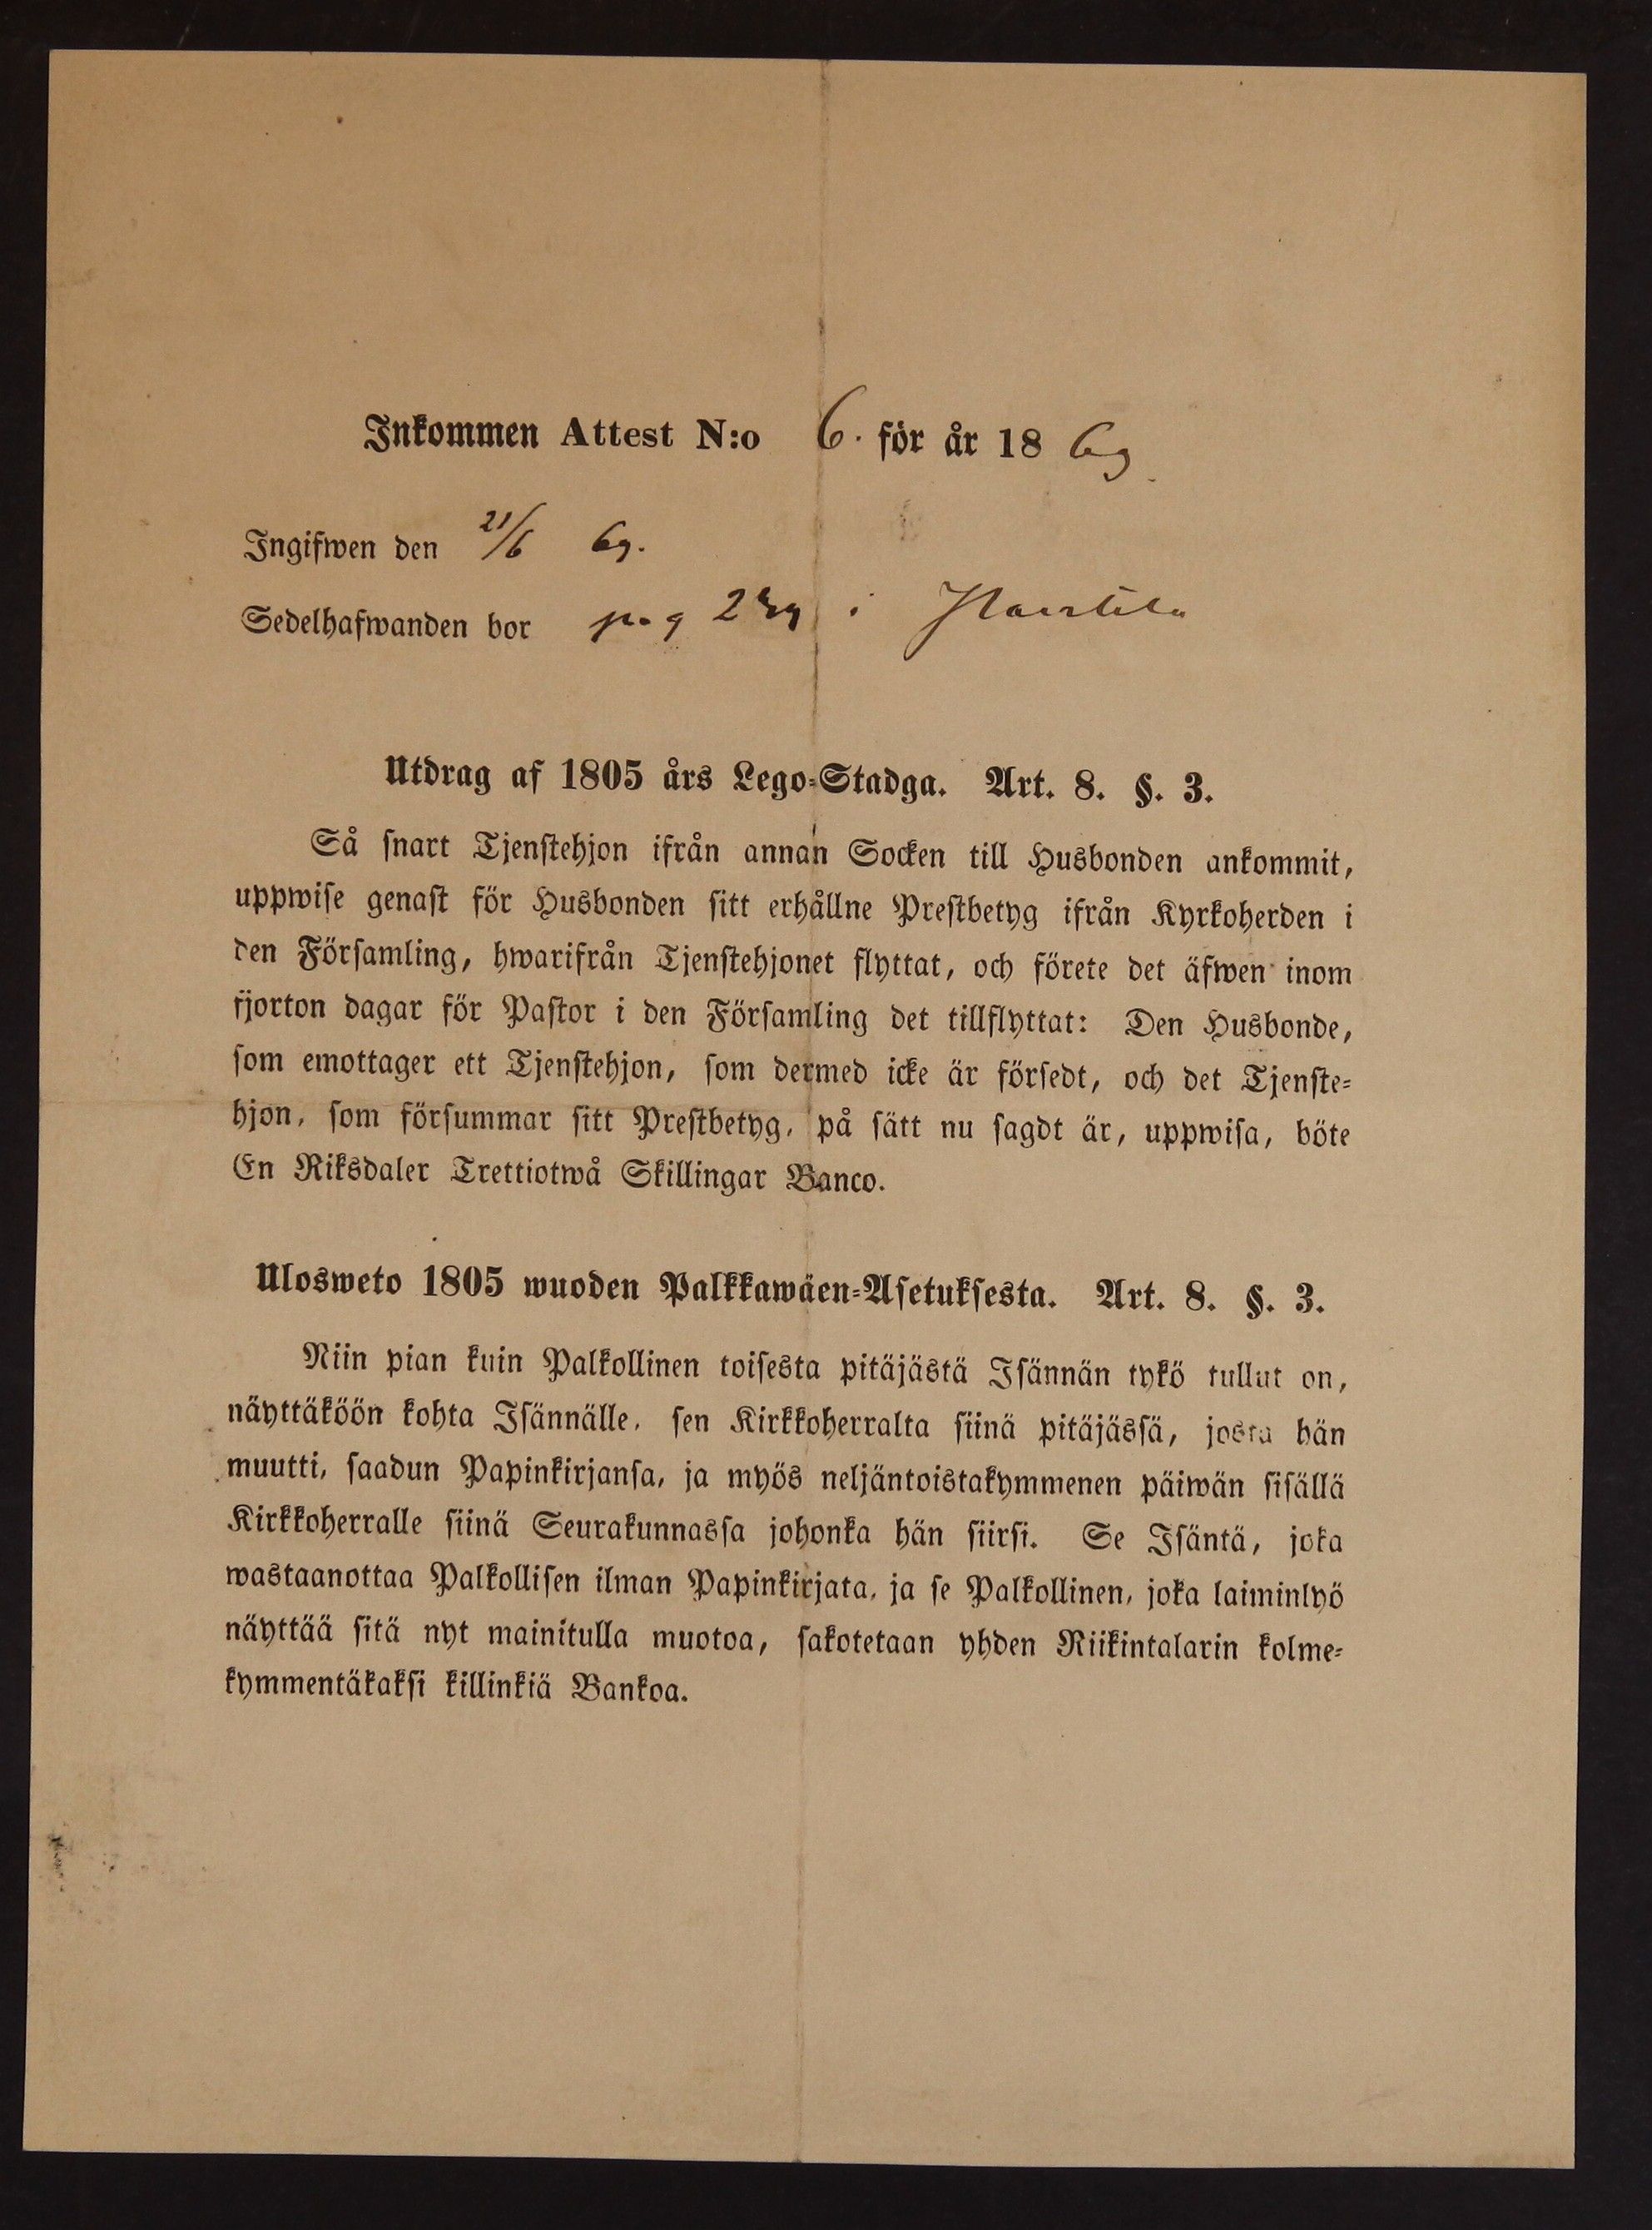 Inkommen Attest N:o 6. för år 1869
Ingifwen den 21/6 69.
Sedelhafwanden bor pag i
Utdrag af 1805 års Lego-Stadga. Art. 8. §. 3.
Så snart Tjenstehjon ifrån annan Socken till Husbonden ankommit,
uppwise genast för Husbonden sitt erhållne Prestbetyg ifrån Kyrkoherden i
den Församling, hwarifrån Tjenstehjonet flyttat, och förete det äfwen inom
fjorton dagar för Pastor i den Församling det tillflyttat: Den Husbonde,
som emottager ett Tjenstehjon, som dermed icke är försedt, och det Tjenste-
hjon, som försummar sitt Prestbetyg, på sätt nu sagdt är, uppwisa, böte
En Riksdaler Trettiotwå Skillingar Banco.
Ulosweto 1805 wuoden Palkkawäen-Asetuksesta. Art. 8. §. 3.
Niin pian kuin Palkollinen toisesta pitäjästä Isännän tykö tullut on,
näyttäköön kohta Isännälle, sen Kirkkoherralta siinä pitäjässä, josta hän
muutti, saadun Papinkirjansa, ja myös neljäntoistakymmenen päiwän sisällä
Kirkkoherralle siinä Seurakunnassa johonka hän siirsi. Se Isäntä, joka
wastaanottaa Palkollisen ilman Papinkirjata, ja se Palkollinen, joka laiminlyö
näyttää sitä nyt mainitulla muotoa, sakotetaan yhden Riikintalarin kolme-
kymmentäkaksi killinkiä Bankoa.